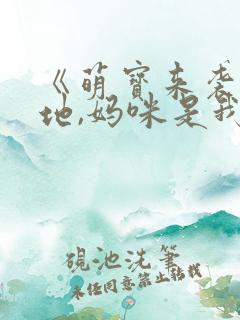 《萌宝来袭
地,妈咪是我
砚池洗笔
未经同意禁止转载